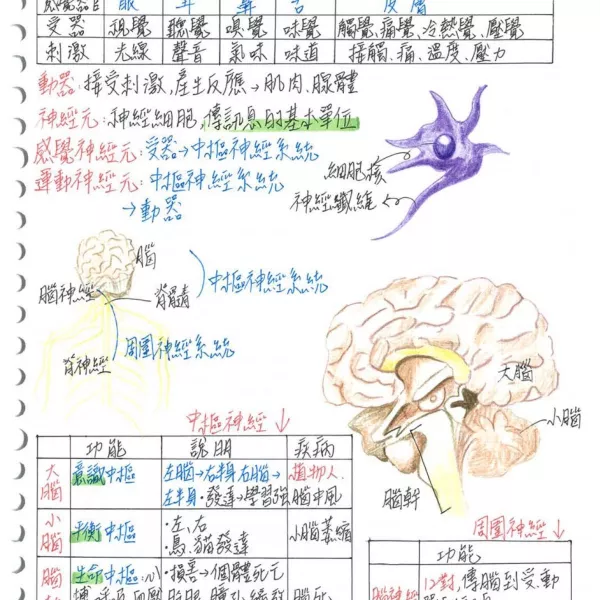 感覺器官 眼 耳 鼻 舌 皮膚
受器 視覺 聽覺 嗅覺 味覺 觸覺.痛覺.冷熱覺.壓覺
刺激 光線 聲音 氣味 味道 接觸.痛.溫度.壓力
動器:接受刺激,產生反應→肌肉.腺體
神經元:神經細胞,傳訊息的基本單位
感覺神經元:受器→中樞神經系統
運動神經元:中樞神經系統
→動器
細胞核
神經纖維
腦
腦神經
脊髓
中樞神經系統
周圍神經系統
脊神經
大腦
小腦
腦幹
中樞神經↓
功能 說明 疾病
大腦 意識中樞 左腦→右半身.右腦→左半身.發達→學習強 植物人.腦中風
小腦 平衡中樞 •左、右 •鳥.貓發達 小腦萎縮
生命中樞:心 •損害→個體死亡
周圍神經↓
功能
腦神經 12對,傳腦到受.動